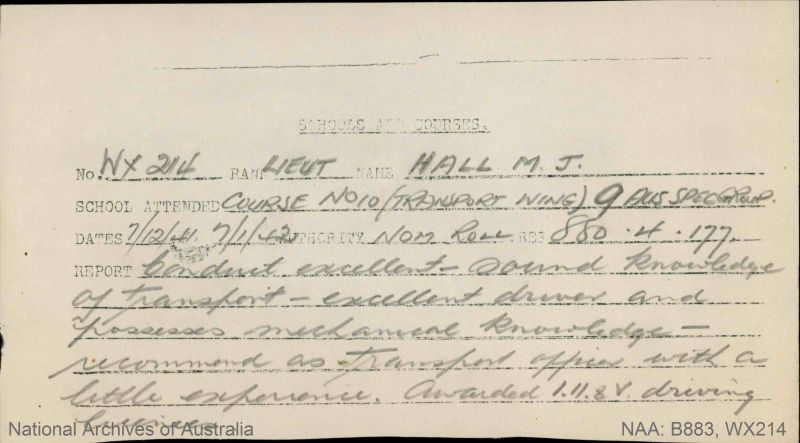 SCHOOLS AND COURSES.
No. WX 214 RANK LIEUT NAME HALL M. J.
SCHOOL ATTENDED COURSE NO 10 (TRANSPORT WING) 9 AUS SPEC GROUP.
DATES 7/12/41. 7/1/42 AUTHORITY NOM ROLL. R33 880.4.177.
REPORT Conduct excellent – sound knowledge
of transport – excellent driver and
possesses mechanical knowledge –
recommend as transport officer with a
little experience. Awarded driving
National Archives of Australia
NAA: B883, WX214